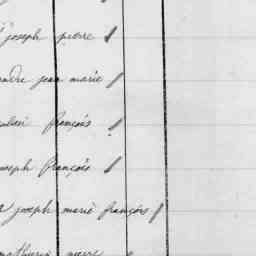 joseph pierre
jean marie
françois
joseph françois
joseph marie françois
mathurin pierre